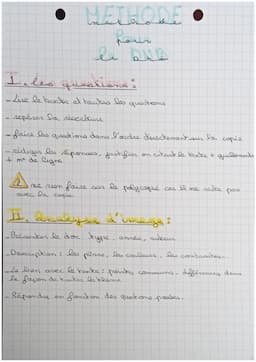 METHODE
pour
le DNB
I. les questions :
- Lire le texte et toutes les questions
- repérer la structure
- faire les questions dans l'ordre directement sur la copie
- rédiger les réponses, justifier en citant le texte + guillemets
+ n° de ligne
⚠ ne rien faire sur le polycopié car il ne sera pas
avec la copie
II. analyse d'image :
- Présenter le doc, type, année, auteur
- Description : les plans, les couleurs, les contrastes...
- Le lien avec le texte : points communs, différences dans
la façon de traiter le thème
- Répondre en fonction des questions posées.